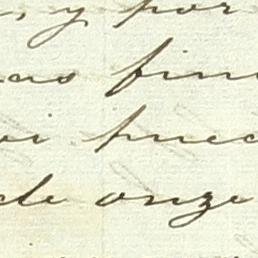 , y por
as fin
i puec
de onze